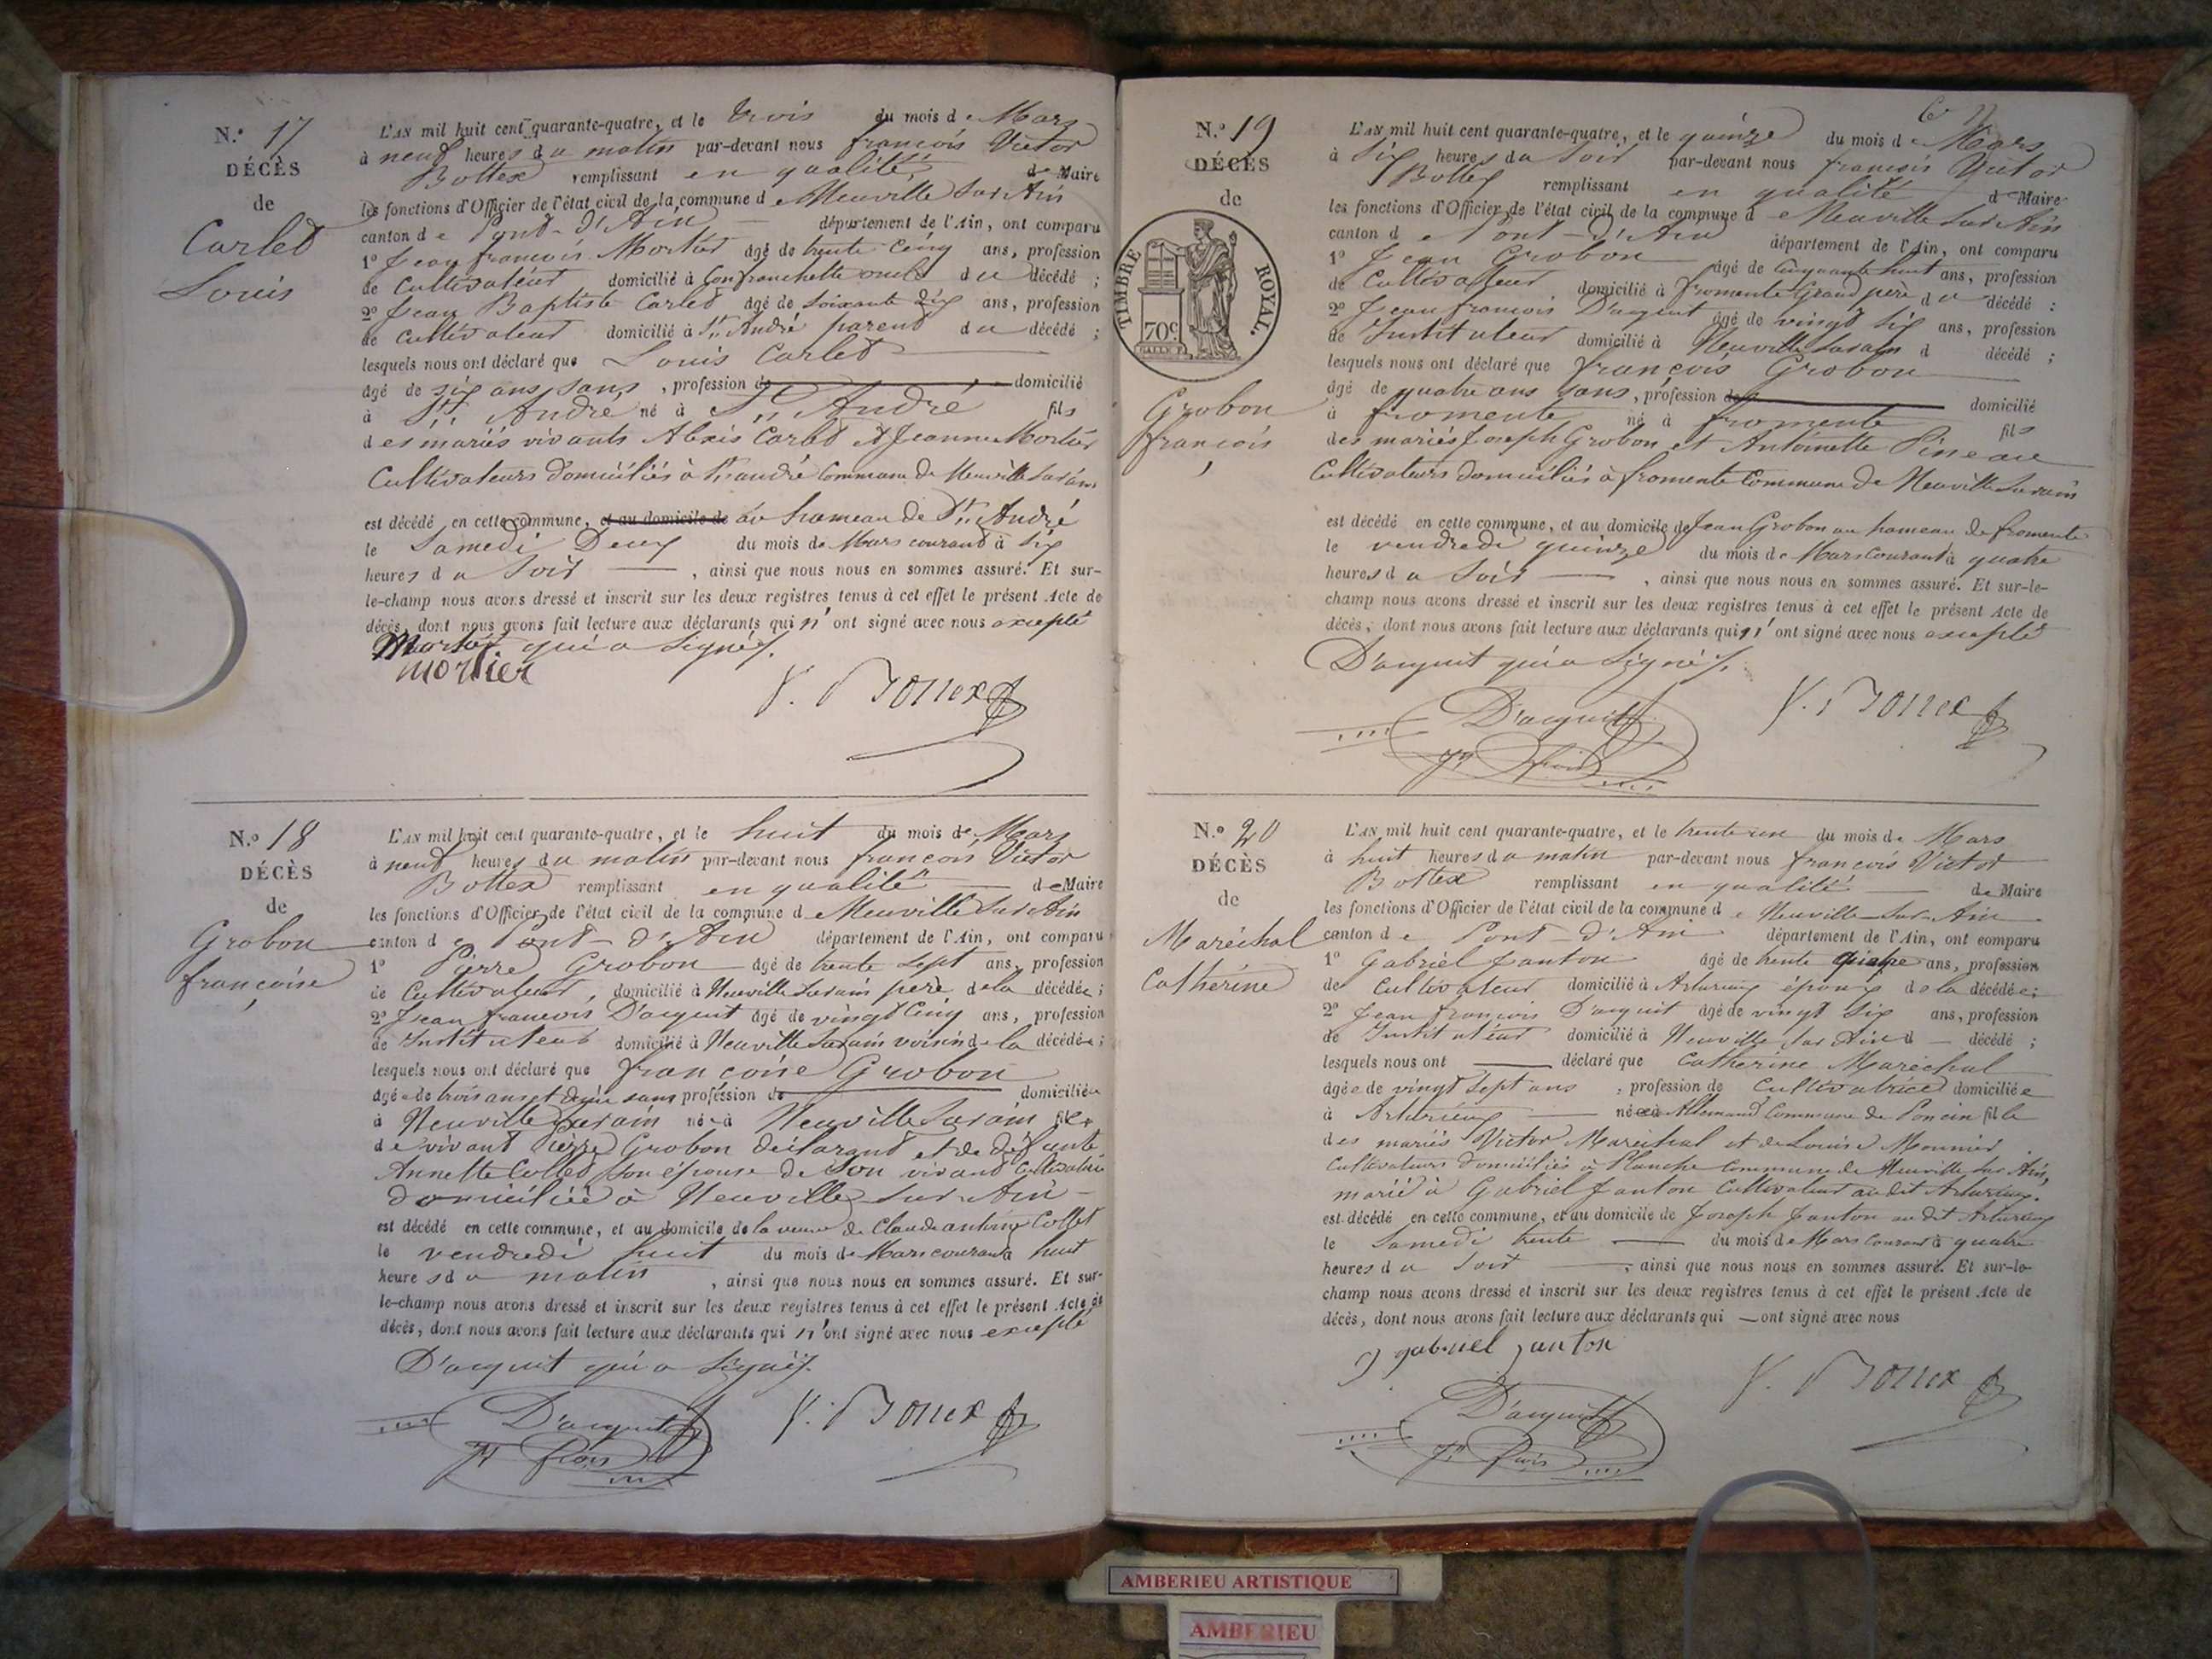 N.° 17
DÉCÈS
de
Carlet
Louis
L'AN mil huit cent quarante-quatre, et le trois du mois de Mars
à neuf heures du matin par-devant nous françois Victor
Bottex remplissant en qualité de Maire
les fonctions d'Officier de l'état civil de la commune de Neuville sur Ain
canton de Pont-d'Ain département de l'Ain, ont comparu
1° Jean françois Mortier âgé de trente cinq ans, profession
de Cultivateur domicilié à Confranchette oncle du décédé ;
2° Jean Baptiste Carlet âgé de soixante dix ans, profession
de Cultivateur domicilié à St. André parent du décédé ;
lesquels nous ont déclaré que Louis Carlet
âgé de six ans, sans, profession de domicilié
à St. André né à St. André fils
des mariés vivants Alexis Carlet et Jeanne Mortier
Cultivateurs domiciliés à St. andré Commune de Neuville sur ain
est décédé en cette commune, et au domicile de au hameau de St. André
le Samedi Deux du mois de Mars courant à six
heures du Soir, ainsi que nous nous en sommes assuré. Et sur-
le-champ nous avons dressé et inscrit sur les deux registres tenus à cet effet le présent Acte de
décès, dont nous avons fait lecture aux déclarants qui n'ont signé avec nous excepté
Mortier qui a signé.
mortier
V. Bottex
N.° 18
DÉCÈS
de
Grobon
françoise
L'AN mil huit cent quarante-quatre, et le huit du mois de Mars
à neuf heures du matin par-devant nous françois Victor
Bottex remplissant en qualité de Maire
les fonctions d'Officier de l'état civil de la commune de Neuville sur Ain
canton de Pont-d'Ain département de l'Ain, ont comparu
1° Pierre Grobon âgé de trente sept ans, profession
de Cultivateur, domicilié à Neuville sur ain père de la décédée ;
2° Jean francois D'arguit âgé de vingt Cinq ans, profession
de Instituteur domicilié à Neuville sur ain voisin de la décédée ;
lesquels nous ont déclaré que françoise Grobon
âgée de trois ans et demi sans profession de domiciliée
à Neuville sur ain née à Neuville sur ain fille
de vivant Pierre Grobon déclarant et de défunte
Annette Collet son épouse de son vivant Cultivatrice
domiciliée à Neuville sur Ain
est décédé en cette commune, et au domicile de la veuve de Claude antoine Collet
le vendredi huit du mois de Mars courant à huit
heures du matin, ainsi que nous nous en sommes assuré. Et sur-
le-champ nous avons dressé et inscrit sur les deux registres tenus à cet effet le présent Acte de
décès, dont nous avons fait lecture aux déclarants qui n'ont signé avec nous excepté
D'arguit qui a signé.
D'arguit
jn fçois
V. Bottex
N.° 19
DÉCÈS
de
TIMBRE ROYAL.
70c
Grobon
françois
L'AN mil huit cent quarante-quatre, et le quinze du mois de Mars
à Six heures du Soir par-devant nous françois Victor
Bottex remplissant en qualité de Maire
les fonctions d'Officier de l'état civil de la commune de Neuville sur Ain
canton de Pont-d'Ain département de l'Ain, ont comparu
1° Jean Grobon âgé de Cinquante huit ans, profession
de Cultivateur domicilié à fromente Grand père du décédé :
2° Jean françois D'arguit âgé de vingt six ans, profession
de Instituteur domicilié à Neuville sur ain d décédé ;
lesquels nous ont déclaré que françois Grobon
âgé de quatre ans sans, profession de domicilié
à fromente né à fromente fils
des mariés Joseph Grobon et Antoinette Pineau
Cultivateurs domiciliés à fromente Commune de Neuville sur ain
est décédé en cette commune, et au domicile de Jean Grobon au hameau de fromente
le vendredi quinze du mois de Mars courant à quatre
heures du Soir, ainsi que nous nous en sommes assuré. Et sur-le-
champ nous avons dressé et inscrit sur les deux registres tenus à cet effet le présent Acte de
décès, dont nous avons fait lecture aux déclarants qui n'ont signé avec nous excepté
D'arguit qui a signé.
D'arguit
jn fçois
V. Bottex
N.° 20
DÉCÈS
de
Maréchal
Catherine
L'AN mil huit cent quarante-quatre, et le trente un du mois de Mars
à huit heures du matin par-devant nous françois Victor
Bottex remplissant en qualité de Maire
les fonctions d'Officier de l'état civil de la commune de Neuville sur Ain
canton de Pont-d'Ain département de l'Ain, ont comparu
1° Gabriel Janton âgé de trente quatre ans, profession
de Cultivateur domicilié à Arturieux époux de la décédée ;
2° Jean françois D'arguit âgé de vingt six ans, profession
de Instituteur domicilié à Neuville sur Ain d décédé ;
lesquels nous ont déclaré que Catherine Maréchal
âgée de vingt sept ans, profession de Cultivatrice domiciliée
à Arturieux née à Allemand Commune de Poncin fille
des mariés Victor Maréchal et de Louise Monnier
Cultivateurs domiciliés à Planche Commune de Neuville sur Ain,
marié à Gabriel Janton Cultivateur au dit Arturieux.
est décédé en cette commune, et au domicile de Joseph Janton au dit Arturieux
le Samedi trente du mois de Mars courant à quatre
heures du Soir, ainsi que nous nous en sommes assuré. Et sur-le-
champ nous avons dressé et inscrit sur les deux registres tenus à cet effet le présent Acte de
décès, dont nous avons fait lecture aux déclarants qui ont signé avec nous
gabriel janton
D'arguit
jn fçois
V. Bottex
AMBERIEU ARTISTIQUE
AMBERIEU